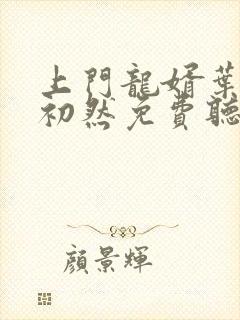 上門龍婿葉
初然免費聽
顏景輝